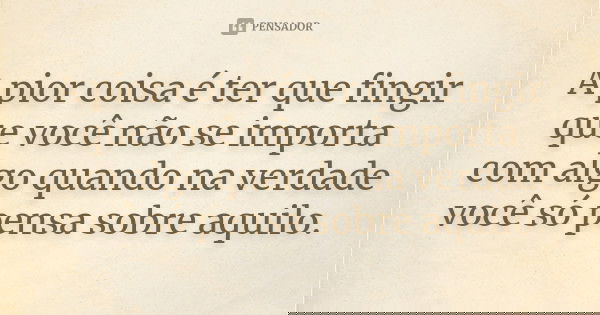 PENSADOR
A pior coisa é ter que fingir
que você não se importa
com algo quando na verdade
você só pensa sobre aquilo.